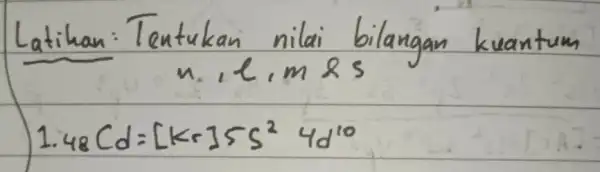 Latihan: Tentukan nilai bilangan kuantum
n, l, m & s
1. 48 Cd = [Kr] 5S² 4d¹⁰